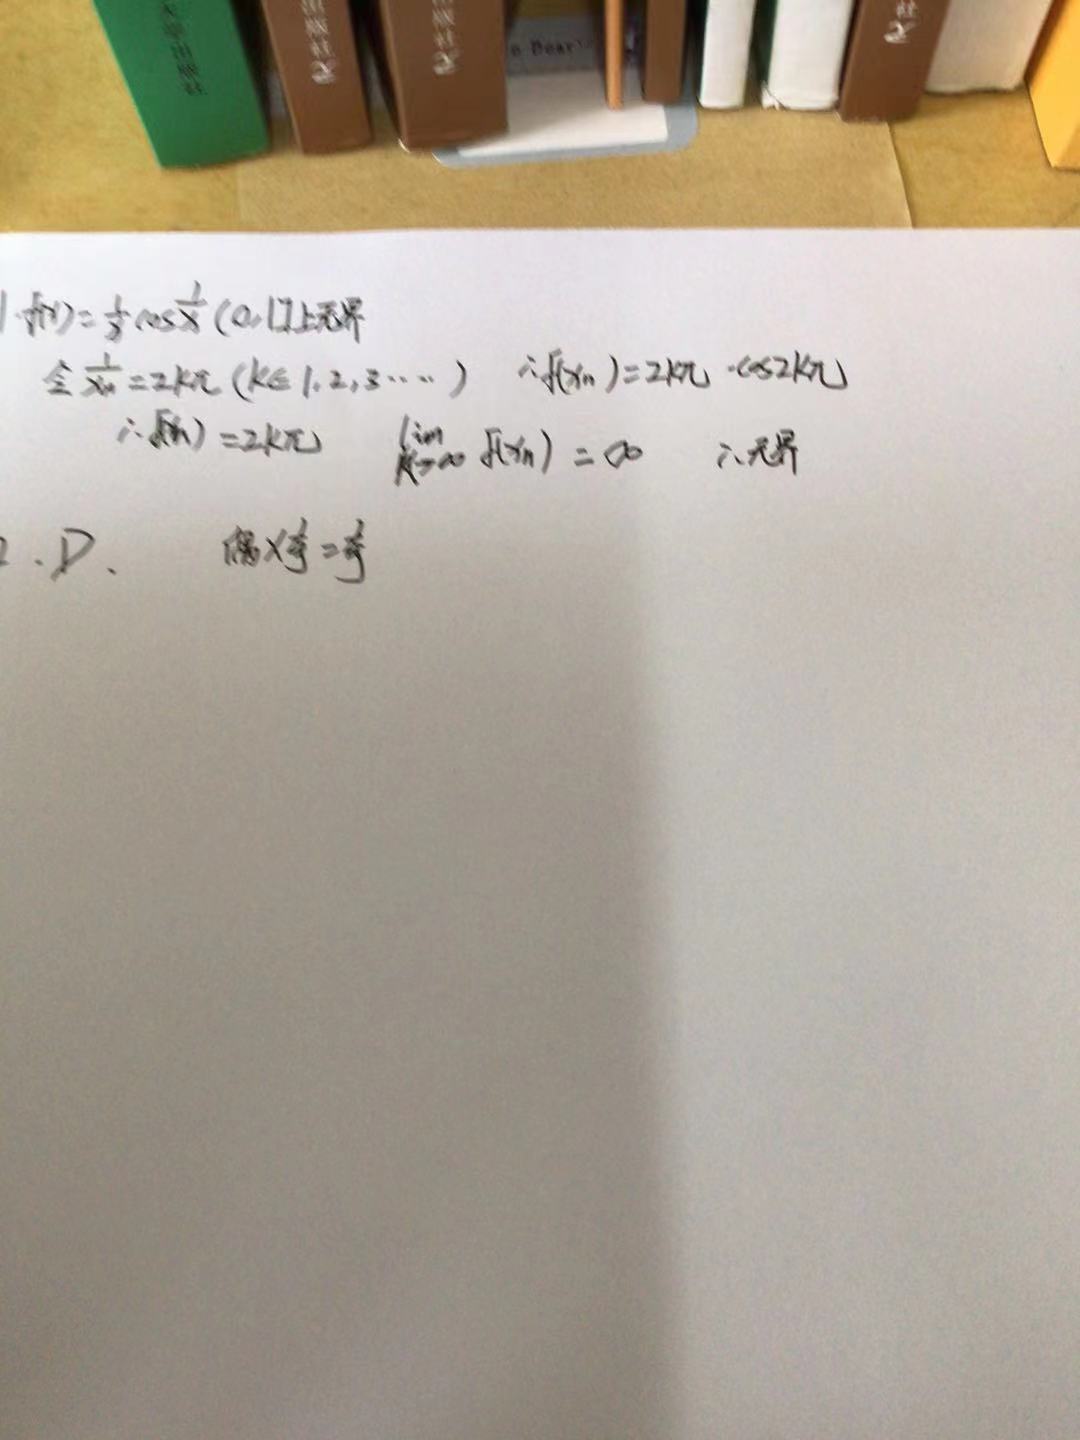 出版社
出版社
社
1. f(x)=1/x cos 1/x (0,1]上无界
令 1/xn = 2kπ (k∈1,2,3····) ∴f(xn)=2kπ·cos2kπ
∴f(xn)=2kπ lim k→∞ f(xn)=∞ ∴无界
2.D. 偶×奇=奇